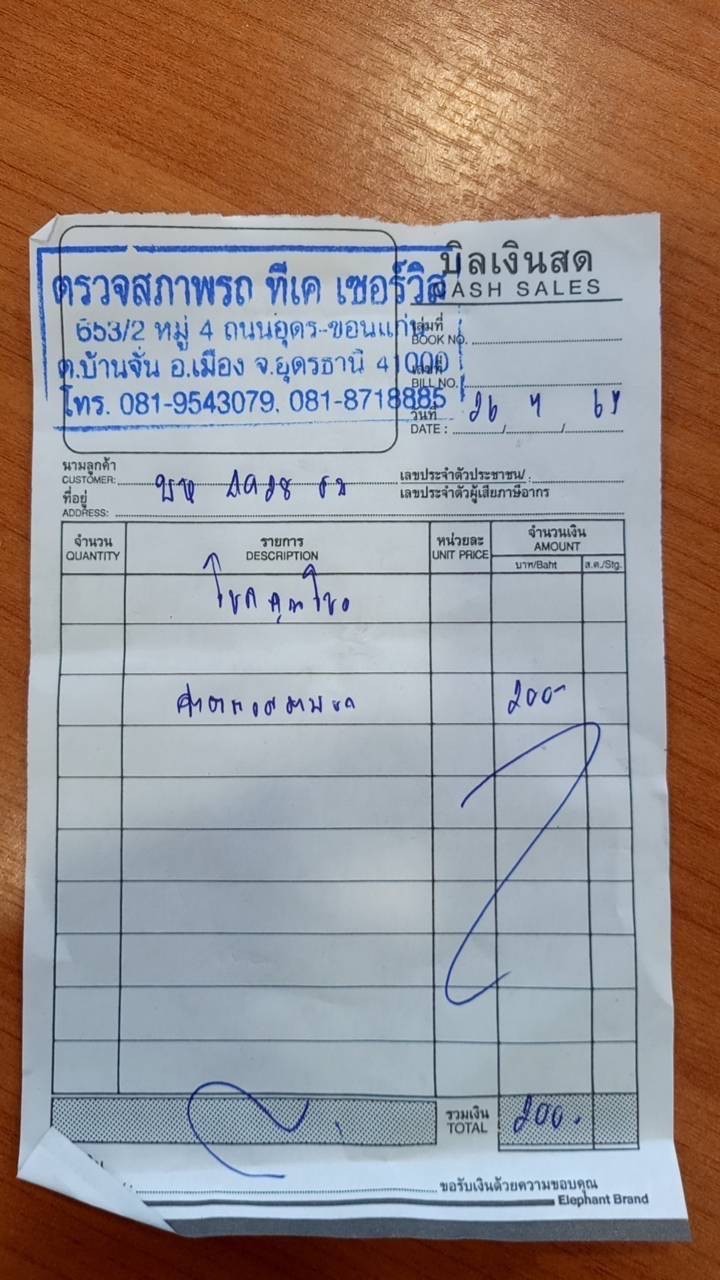 บิลเงินสด
CASH SALES
ตรวจสภาพรถ ทีเค เซอร์วิส
653/2 หมู่ 4 ถนนอุดร-ขอนแก่น
ต.บ้านจั่น อ.เมือง จ.อุดรธานี 41000
โทร. 081-9543079. 081-8718885
เล่มที่
BOOK NO.
เลขที่
BILL NO.
วันที่ 26 7
DATE :
นามลูกค้า
CUSTOMER:
ที่อยู่
ADDRESS:
เลขประจำตัวประชาชน/
เลขประจำตัวผู้เสียภาษีอากร
จำนวน รายการ หน่วยละ จำนวนเงิน
QUANTITY DESCRIPTION UNIT PRICE AMOUNT
บาท/Baht ส.ต./Stg.
ค่าตรวจสภาพรถ 200-
รวมเงิน 200.
TOTAL
ขอรับเงินด้วยความขอบคุณ
Elephant Brand